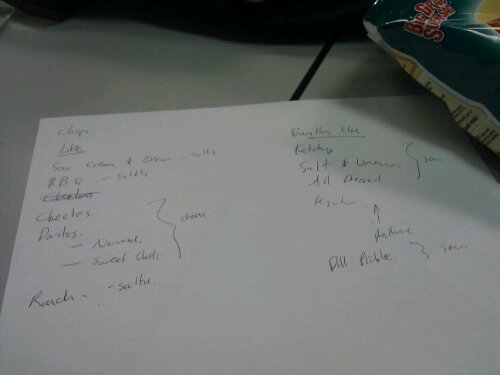 Chips
Like
Sour Cream & Onion - salty
BBQ - salty
Cheetos
Cheetos
Doritos
- Normal
- Sweet Chili
cheese
Ranch - - salty
Everything Else
Ketchup
Salt & Vinegar
All Dressed
sour
Regular
Dill Pickle
sour